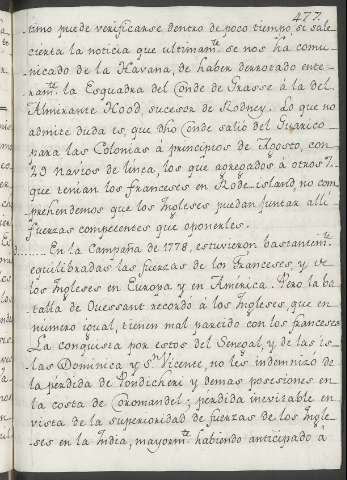 477.
timo puede verificarse dentro de poco tiempo, si sale
cierta la noticia que ultimam.te se nos ha comu-
nicado de la Havana, de haber derrotado ente-
ram.te la Esquadra del Conde de Grasse á la del
Almirante Hood, sucesor de Rodney. Lo que no
admite duda es, que dho Conde salió del Guarico
para las Colonias á principios de Agosto, con
29 Navios de linea, los que agregados á otros 7.
que tenian los franceses en Rode-island, no com-
prehendemos que los Ingleses puedan juntar alli
fuerzas competentes que oponerles.
En la Campaña de 1778, estuvieron bastantem.te
equilibradas las fuerzas de los Franceses, y de
los Ingleses en Europa y en America. Pero la ba-
talla de Ouessant recordó á los Ingleses, que en
número igual, tienen mal partido con los franceses.
La conquista por estos del Senegal, y de las is-
las Dominica y S.n Vicente, no les indemnizó de
la perdida de Pondicheri y demas posesiones en
la costa de Coromandel; perdida inevitable en
vista de la superioridad de fuerzas de los Ingle-
ses en la India, mayorm.te habiendo anticipado á